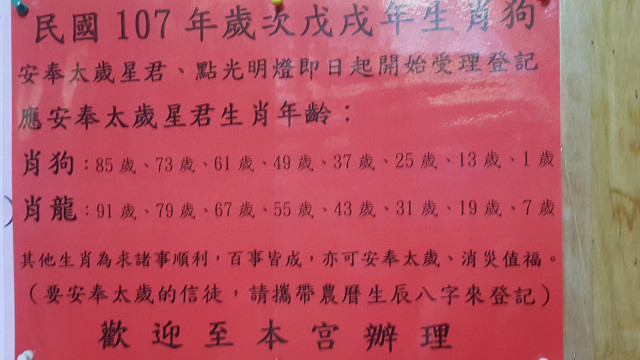 民國107年歲次戊戌年生肖狗
安奉太歲星君、點光明燈即日起開始受理登記
應安奉太歲星君生肖年齡：
肖狗：85歲、73歲、61歲、49歲、37歲、25歲、13歲、1歲
肖龍：91歲、79歲、67歲、55歲、43歲、31歲、19歲、7歲
其他生肖為求諸事順利，百事皆成，亦可安奉太歲、消災值福。
（要安奉太歲的信徒，請攜帶農曆生辰八字來登記）
歡迎至本宮辦理